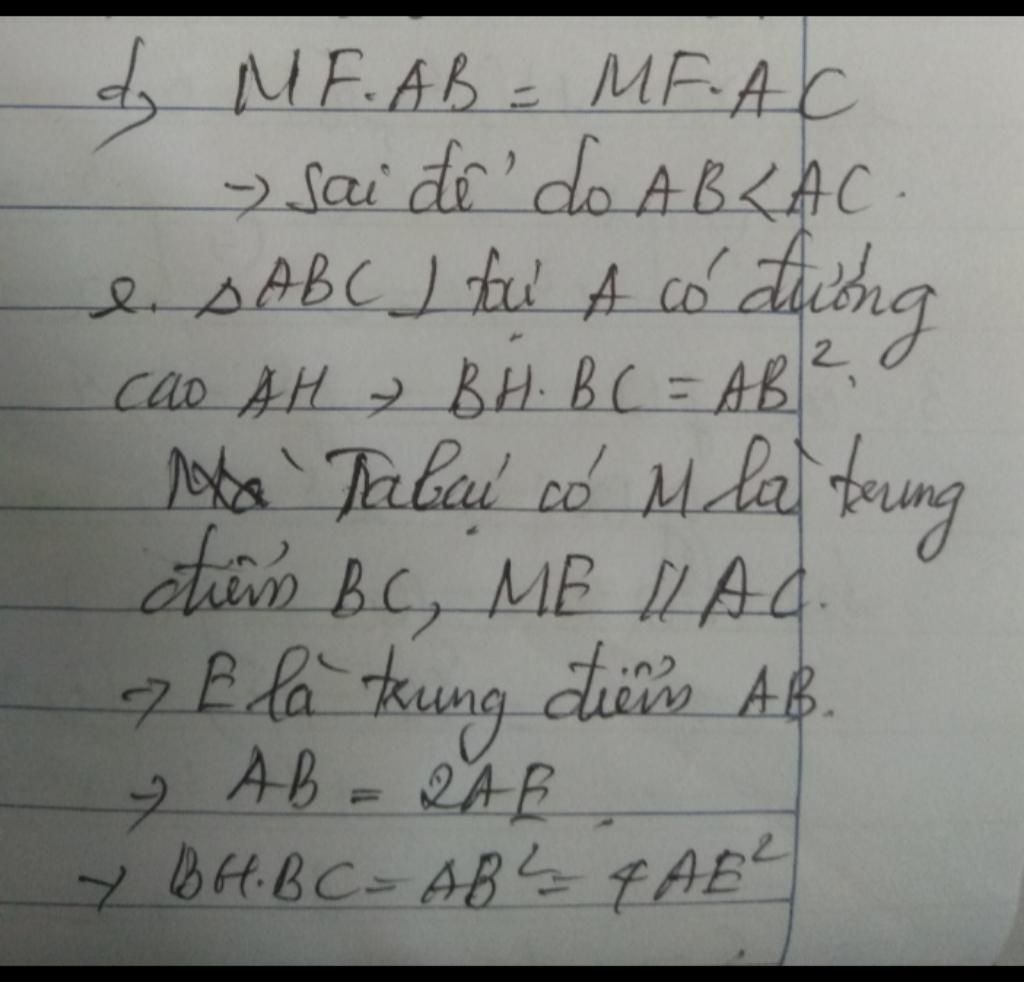 d, MF.AB = MF.AC
→ sai đề do AB < AC.
e. △ABC ⊥ tại A có đường
cao AH → BH.BC = AB².
Ta lại có M là trung
điểm BC, ME // AC.
→ E là trung điểm AB.
→ AB = 2AE
→ BH.BC = AB² = 4AE²